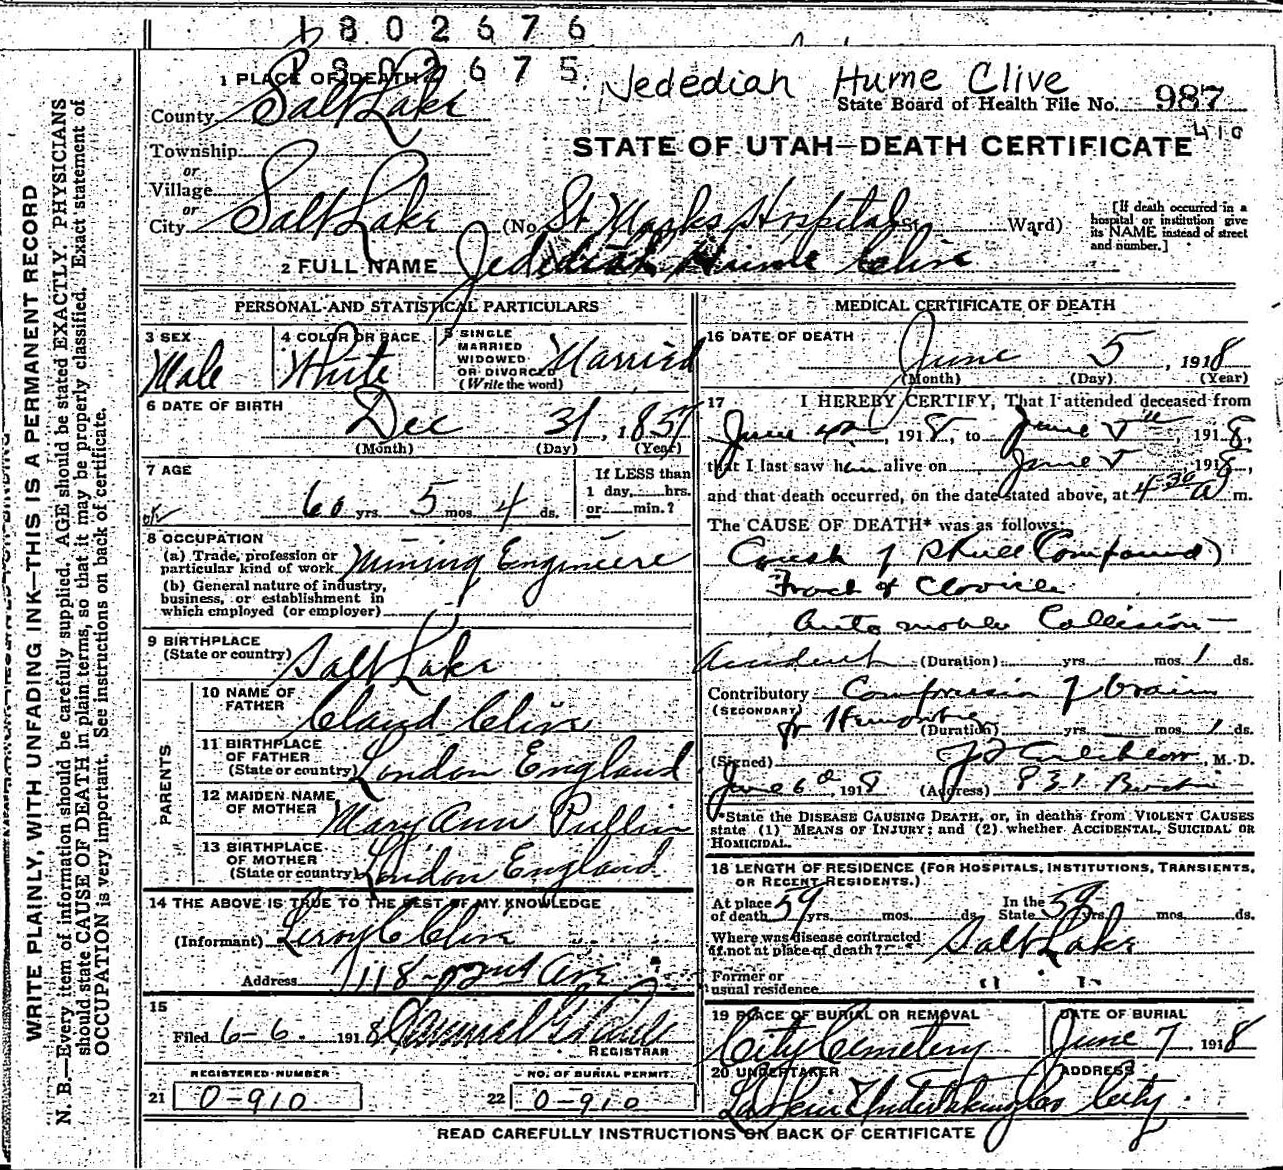 1802676
1802675
Jedediah Hume Clive
1 PLACE OF DEATH
State Board of Health File No. 987
410
County Salt Lake
STATE OF UTAH—DEATH CERTIFICATE
Township
or
Village
or
City Salt Lake (No. St. Marks Hospital St. Ward)
[If death occurred in a hospital or institution give its NAME instead of street and number.]
2 FULL NAME Jedediah Hume Clive
PERSONAL AND STATISTICAL PARTICULARS
3 SEX Male
4 COLOR OR RACE White
5 SINGLE MARRIED WIDOWED OR DIVORCED (Write the word) Married
6 DATE OF BIRTH Dec 31, 1857
(Month) (Day) (Year)
7 AGE 60 yrs. 5 mos. 4 ds.
If LESS than 1 day, hrs. or min.?
8 OCCUPATION
(a) Trade, profession or particular kind of work Mining Engineere
(b) General nature of industry, business, or establishment in which employed (or employer)
9 BIRTHPLACE (State or country) Salt Lake
PARENTS
10 NAME OF FATHER Claud Clive
11 BIRTHPLACE OF FATHER (State or country) London England
12 MAIDEN NAME OF MOTHER Mary Ann Pullin
13 BIRTHPLACE OF MOTHER (State or country) London England
14 THE ABOVE IS TRUE TO THE BEST OF MY KNOWLEDGE
(Informant) Leroy C Clive
Address 1118-2nd Ave
15
Filed 6-6. 1918
REGISTRAR
REGISTERED NUMBER
21 0-910
NO. OF BURIAL PERMIT
22 0-910
MEDICAL CERTIFICATE OF DEATH
16 DATE OF DEATH June 5, 1918
(Month) (Day) (Year)
17 I HEREBY CERTIFY, That I attended deceased from
June 4th, 1918, to June 5th, 1918,
that I last saw him alive on June 5, 1918,
and that death occurred, on the date stated above, at 4-30 a m.
The CAUSE OF DEATH* was as follows:
Crush of Skull (Compound)
Fract of Clavicle
Automobile Collision—
Accident (Duration) yrs. mos. 1 ds.
Contributory Compression of brain
(SECONDARY) fr Hemorrhage (Duration) yrs. mos. 1 ds.
(Signed) M. D.
June 6th, 1918 (Address)
*State the DISEASE CAUSING DEATH, or, in deaths from VIOLENT CAUSES
state (1) MEANS OF INJURY; and (2) whether ACCIDENTAL, SUICIDAL OR
HOMICIDAL.
18 LENGTH OF RESIDENCE (FOR HOSPITALS, INSTITUTIONS, TRANSIENTS,
OR RECENT RESIDENTS.)
At place of death 59 yrs. mos. ds. In the State 59 yrs. mos. ds.
Where was disease contracted if not at place of death? Salt Lake
Former or usual residence " "
19 PLACE OF BURIAL OR REMOVAL City Cemetery
DATE OF BURIAL June 7, 1918
20 UNDERTAKER Larkin Undertaking Co
ADDRESS City.
READ CAREFULLY INSTRUCTIONS ON BACK OF CERTIFICATE
WRITE PLAINLY, WITH UNFADING INK—THIS IS A PERMANENT RECORD
N. B.—Every item of information should be carefully supplied. AGE should be stated EXACTLY. PHYSICIANS
should state CAUSE OF DEATH in plain terms, so that it may be properly classified. Exact statement of
OCCUPATION is very important. See instructions on back of certificate.